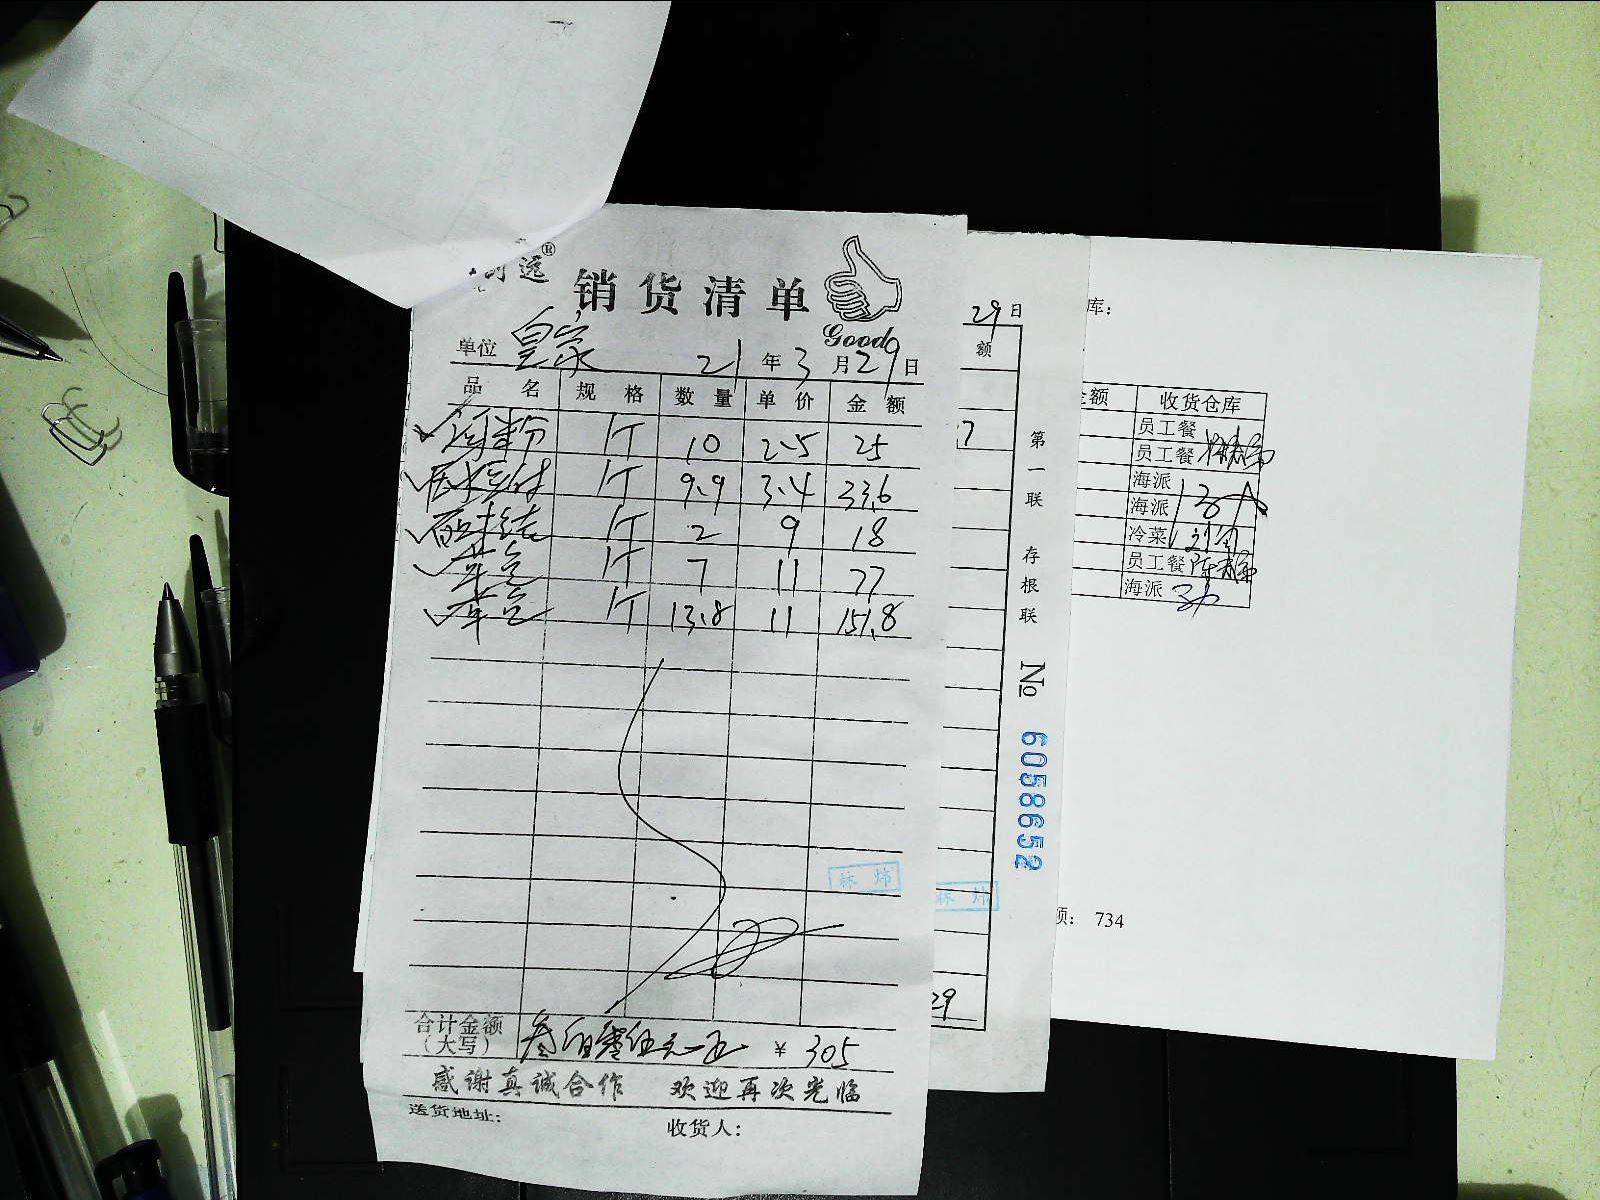 远®
销货清单
Good
单位 皇家 21年3月29日
品名 规格 数量 单价 金额
河粉 斤 10 2.5 25
斤 9.9 3.4 33.6
斤 2 9 18
斤 7 11 77
斤 13.8 11 151.8
合计金额(大写) 叁佰零伍元正 ¥ 305
感谢真诚合作 欢迎再次光临
送货地址: 收货人:
林炜
29日
额
7
29
林炜
第一联 存根联
No 6058652
库:
金额 收货仓库
员工餐
员工餐
海派
海派
冷菜
员工餐
海派
额: 734